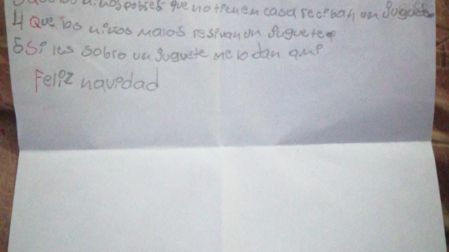 niños pobres que no tienen casa recivan un Juguete
4 Que los niños malos resivan un Juguete
5 Si les sobro un Juguete me lo dan a mi
Feliz navidad